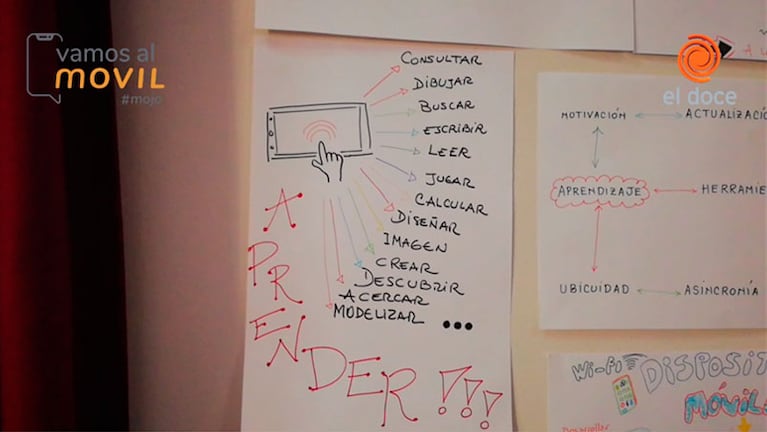 vamos al
MOVIL
#mojo
el doce
CONSULTAR
DIBUJAR
BUSCAR
ESCRIBIR
LEER
JUGAR
CALCULAR
DISEÑAR
IMAGEN
CREAR
DESCUBRIR
ACERCAR
MODELIZAR ...
APRENDER !!!
MOTIVACIÓN
ACTUALIZACIÓ
APRENDIZAJE
HERRAMIE
UBICUIDAD
ASINCRONÍA
Wi-Fi
DISPOSIT
MÓVIL
Desarrollar